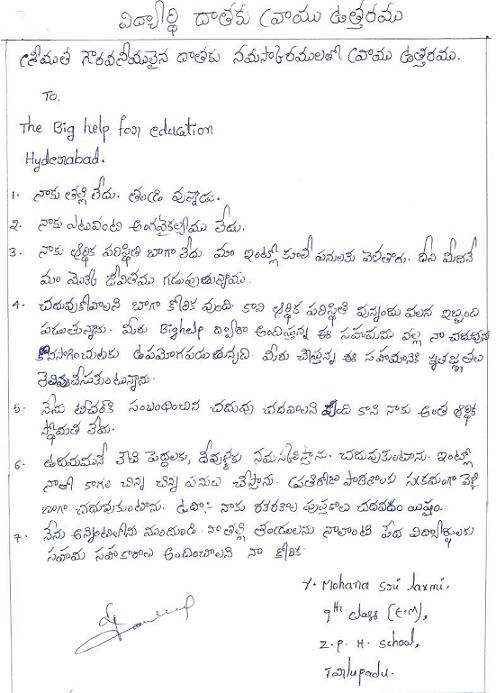 విద్యార్థి దాతకు వ్రాయు ఉత్తరము
శ్రీమతి గౌరవనీయులైన దాతకు నమస్కారములతో వ్రాయు ఉత్తరము.
To,
The Big help for education
Hyderabad.
1. నాకు తల్లి లేదు. తండ్రి వున్నాడు.
2. నాకు ఎటువంటి అంగవైకల్యము లేదు.
3. నాకు ఆర్థిక పరిస్థితి బాగా లేదు. మా ఇంట్లో కూలి పనులకు వెళతారు. దీని మీదనే
మా జీవితము గడుపుతున్నాము.
4. చదువుకోవాలని బాగా కోరిక వుంది. కాని ఆర్థిక పరిస్థితి వలన ఇబ్బంది
పడుతున్నాను. మీరు Bighelp ద్వారా అందిస్తున్న ఈ సహాయము వల్ల నా చదువును
కొనసాగించుటకు ఉపయోగపడుతున్నది. మీరు చేస్తున్న ఈ సహాయానికి కృతజ్ఞతలు
తెలియచేసుకుంటున్నాను.
5. నేను టీచర్‌కి సంబంధించిన చదువు చదవాలని వుంది కాని నాకు అంత ఆర్థిక
స్థోమత లేదు.
6. ఉదయమునే లేచి పెద్దలకు, దేవుళ్లకు నమస్కరిస్తాను. చదువుకుంటాను. ఇంట్లో
నాతో కాగల చిన్న చిన్న పనులు చేస్తాను. ప్రతిరోజు పాఠశాలకు సక్రమంగా వెళ్లి
బాగా చదువుకుంటాను. నాకు పుస్తకాలు చదవడం ఇష్టం.
7. నేను అన్నింటిలోను ముందుండి నా తల్లి తండ్రులను నాలాంటి పేద విద్యార్థులకు
సహాయ సహకారాలు అందించాలని నా కోరిక.
Y. Mohana Sri laxmi.
9th class (E.M),
Z.P.H. School,
Tarlupadu.